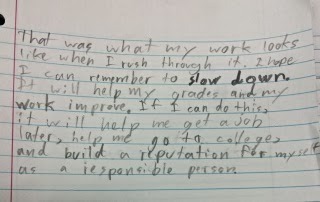 That was what my work looks
like when I rush through it. I hope
I can remember to slow down.
It will help my grades and my
work improve. If I can do this,
it will help me get a job
later, help me go to college,
and build a reputation for myself
as a responsible person.